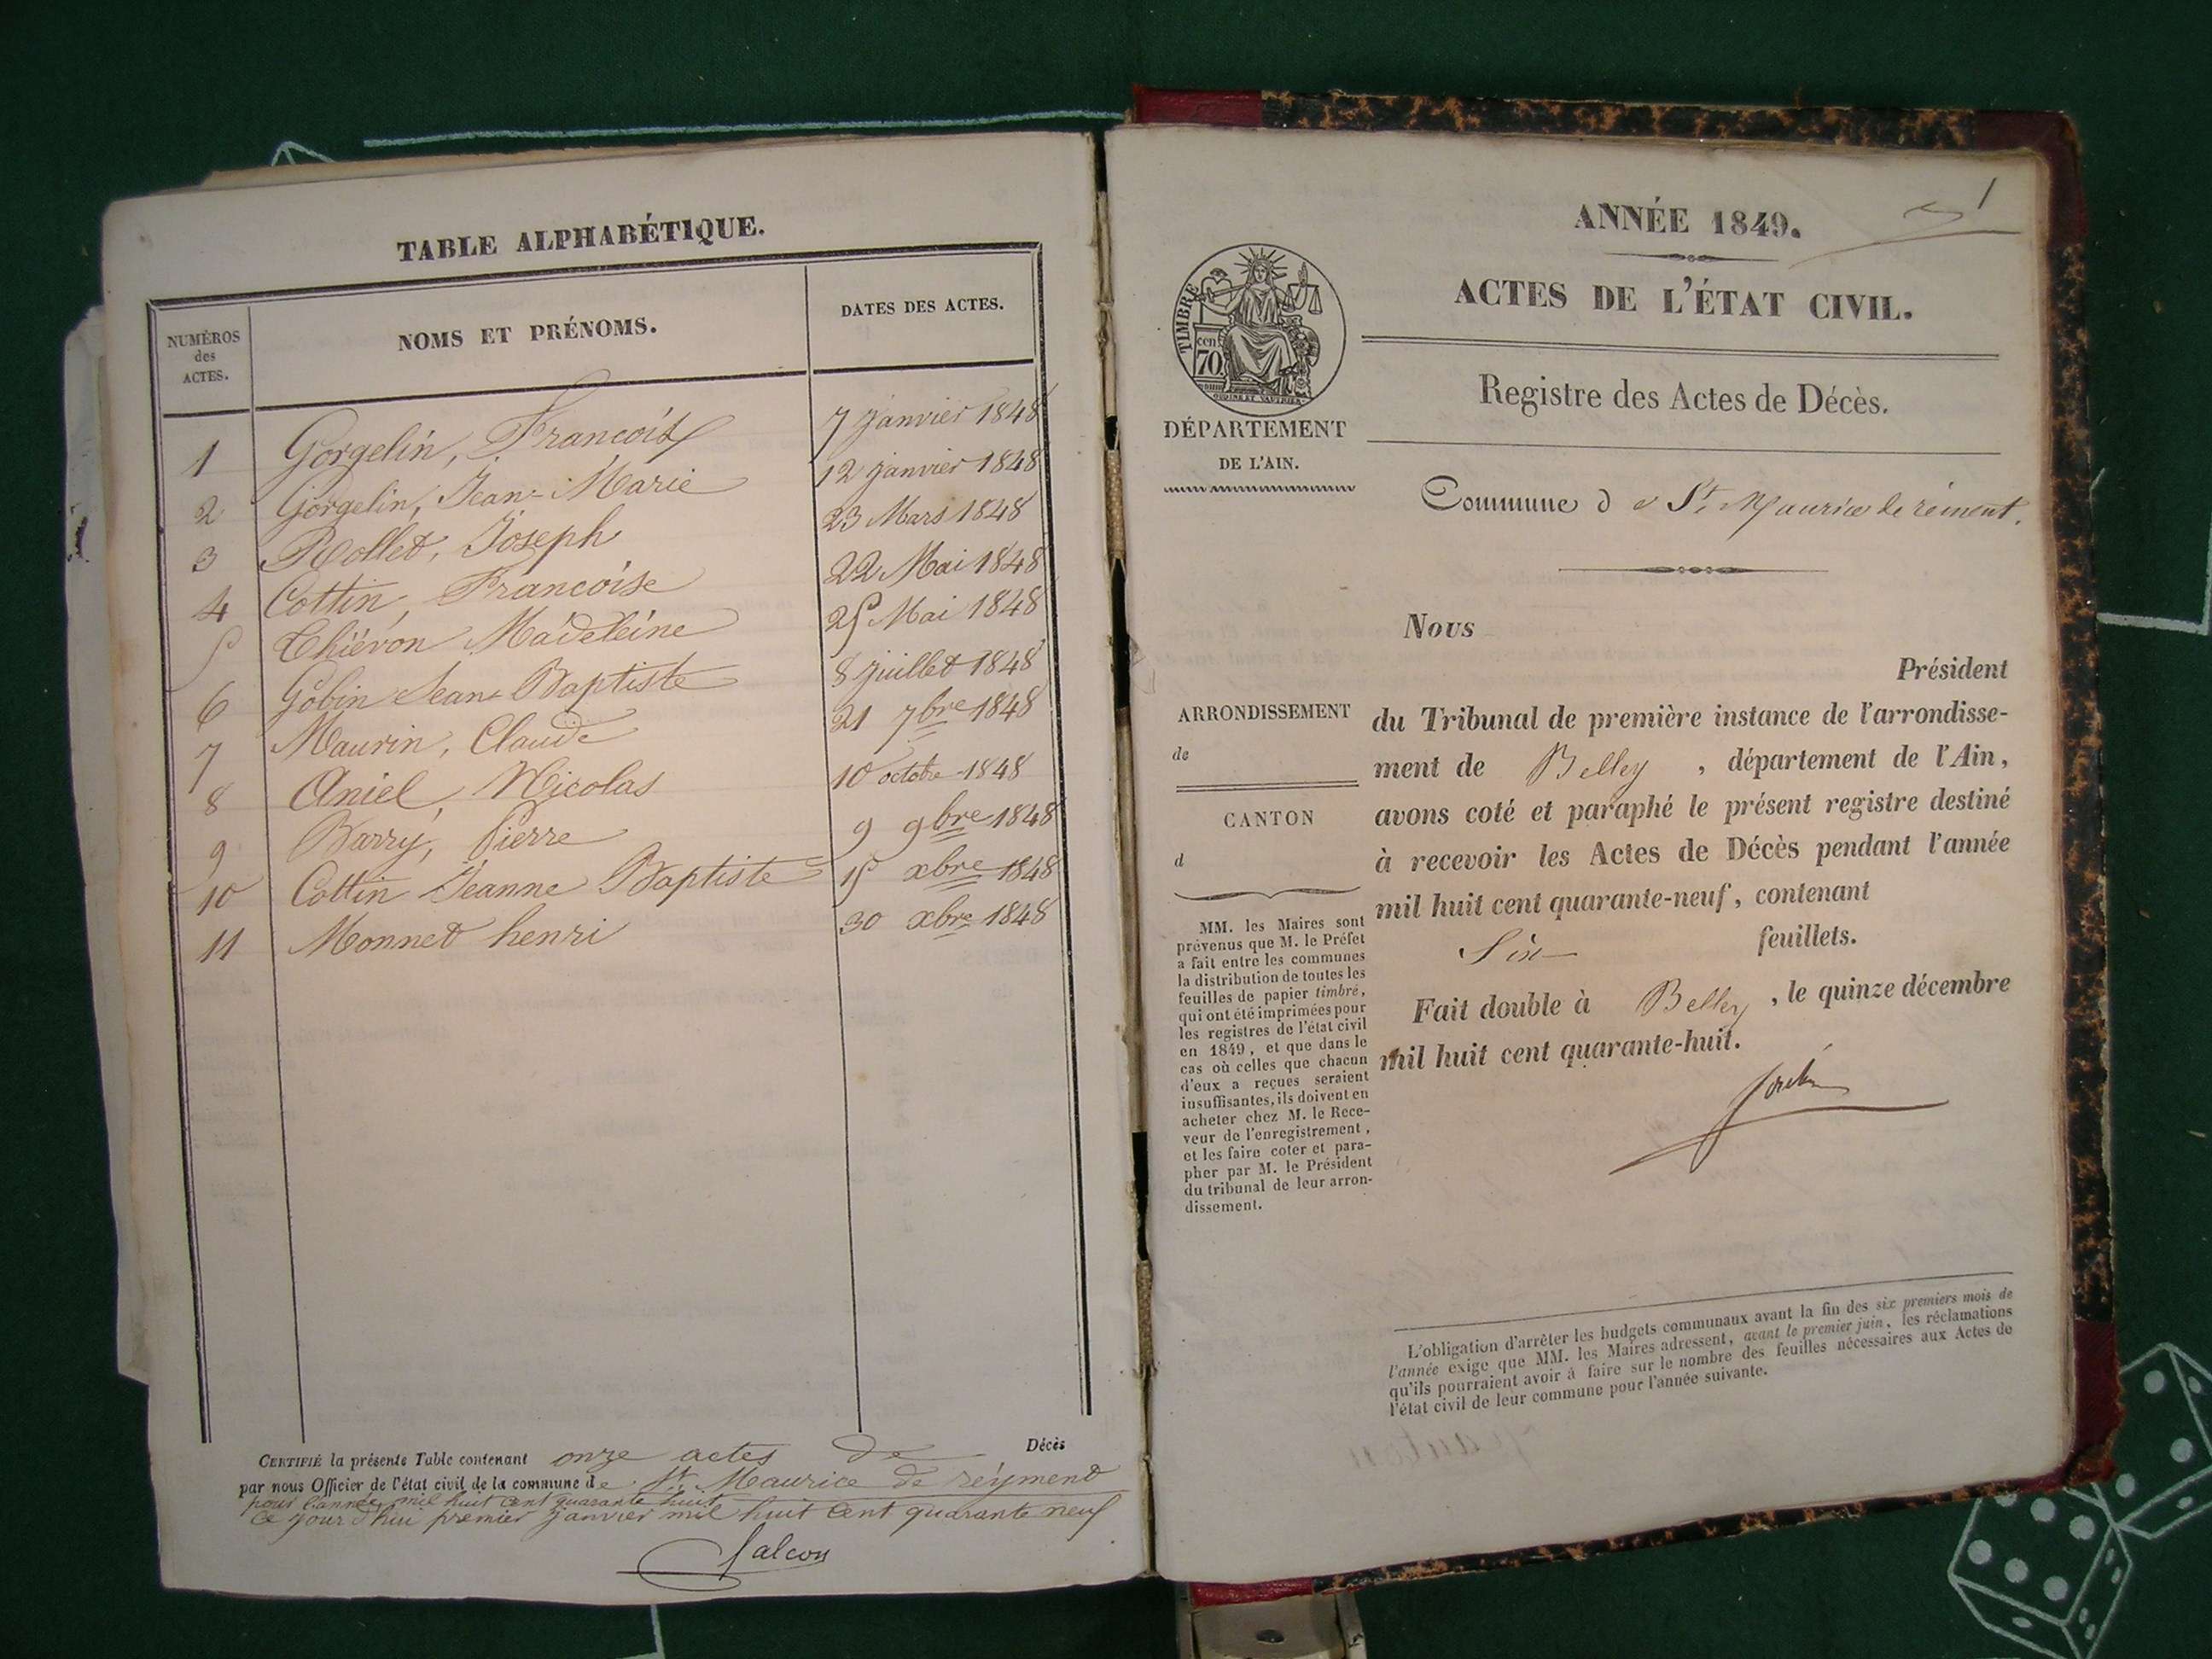 TABLE ALPHABÉTIQUE.
NUMÉROS des ACTES. NOMS ET PRÉNOMS. DATES DES ACTES.
1 Gorgelin, François 7 janvier 1848
2 Gorgelin, Jean-Marie 12 janvier 1848
3 Rollet, Joseph 23 Mars 1848
4 Cottin, Francoise 22 Mai 1848
5 Thiévon Madeleine 25 Mai 1848
6 Gobin Jean-Baptiste 8 juillet 1848
7 Maurin, Claude 21 7bre 1848
8 Aniel, Nicolas 10 octobre 1848
9 Barry, Pierre 9 9bre 1848
10 Cottin Jeanne Baptiste 15 xbre 1848
11 Monnet henri 30 xbre 1848
CERTIFIÉ la présente Table contenant onze actes de Décès
par nous Officier de l'état civil de la commune de St. Maurice de réyment
pour l'année mil huit cent quarante huit
Ce jour d'hui premier janvier mil huit cent quarante neuf
falcon
1
ANNÉE 1849.
ACTES DE L'ÉTAT CIVIL.
Registre des Actes de Décès.
TIMBRE
cen
70
DÉPARTEMENT
DE L'AIN.
Commune d e St. Maurice de rément.
Nous
Président
du Tribunal de première instance de l'arrondisse-
ment de Belley , département de l'Ain,
avons coté et paraphé le présent registre destiné
à recevoir les Actes de Décès pendant l'année
mil huit cent quarante-neuf, contenant
Six feuillets.
Fait double à Belley , le quinze décembre
mil huit cent quarante-huit.
ARRONDISSEMENT
de
CANTON
d
MM. les Maires sont
prévenus que M. le Préfet
a fait entre les communes
la distribution de toutes les
feuilles de papier timbré,
qui ont été imprimées pour
les registres de l'état civil
en 1849, et que dans le
cas où celles que chacun
d'eux a reçues seraient
insuffisantes, ils doivent en
acheter chez M. le Rece-
veur de l'enregistrement,
et les faire coter et para-
pher par M. le Président
du tribunal de leur arron-
dissement.
L'obligation d'arrêter les budgets communaux avant la fin des six premiers mois de
l'année exige que MM. les Maires adressent, avant le premier juin, les réclamations
qu'ils pourraient avoir à faire sur le nombre des feuilles nécessaires aux Actes de
l'état civil de leur commune pour l'année suivante.